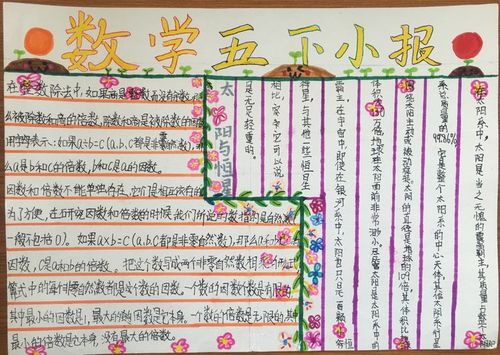 数学五下小报
在整数除法中,如果商是整数而没有余数,
么被除数和倍的倍数,除数和商是被除数的因数
用字母表示:如果a÷b=c(a.b.c都是非零自然数),那
么a是b和c的倍数,b和c是a的因数。
因数和倍数不能单独存在,它们是相互依存的
为了方便,在研究因数和倍数的时候,我们所说的数指的是自然数
一般不包括0)。如果a×b=c(a.b.c都是非零自然数),那么a和b是c
因数,c是a和b的倍数。把这个数写成两个非零自然数相乘
算式中的每个非零自然数都是这个数的因数。一个数的因数个数是有限的
其中最小的因数是1,最大的因数是它本身。一个数的倍数是无限的,其中
最小的倍数是它本身,没有最大的倍数。
太阳与恒星
在太阳系中,太阳是当之无愧的霸主,其质量占整个太阳
系总质量的99.86%,它是整个太阳系的中心天体,其他太阳系中的
太阳的直径是地球的109倍,其体积比
体积大130万倍,地球在太阳面前非常渺小。尽管太阳是太阳系中的
霸主,在宇宙中,即使在银河系中,太阳也只是一颗
恒星,与其他一些恒星
相比,它可以说
是无足轻重的。